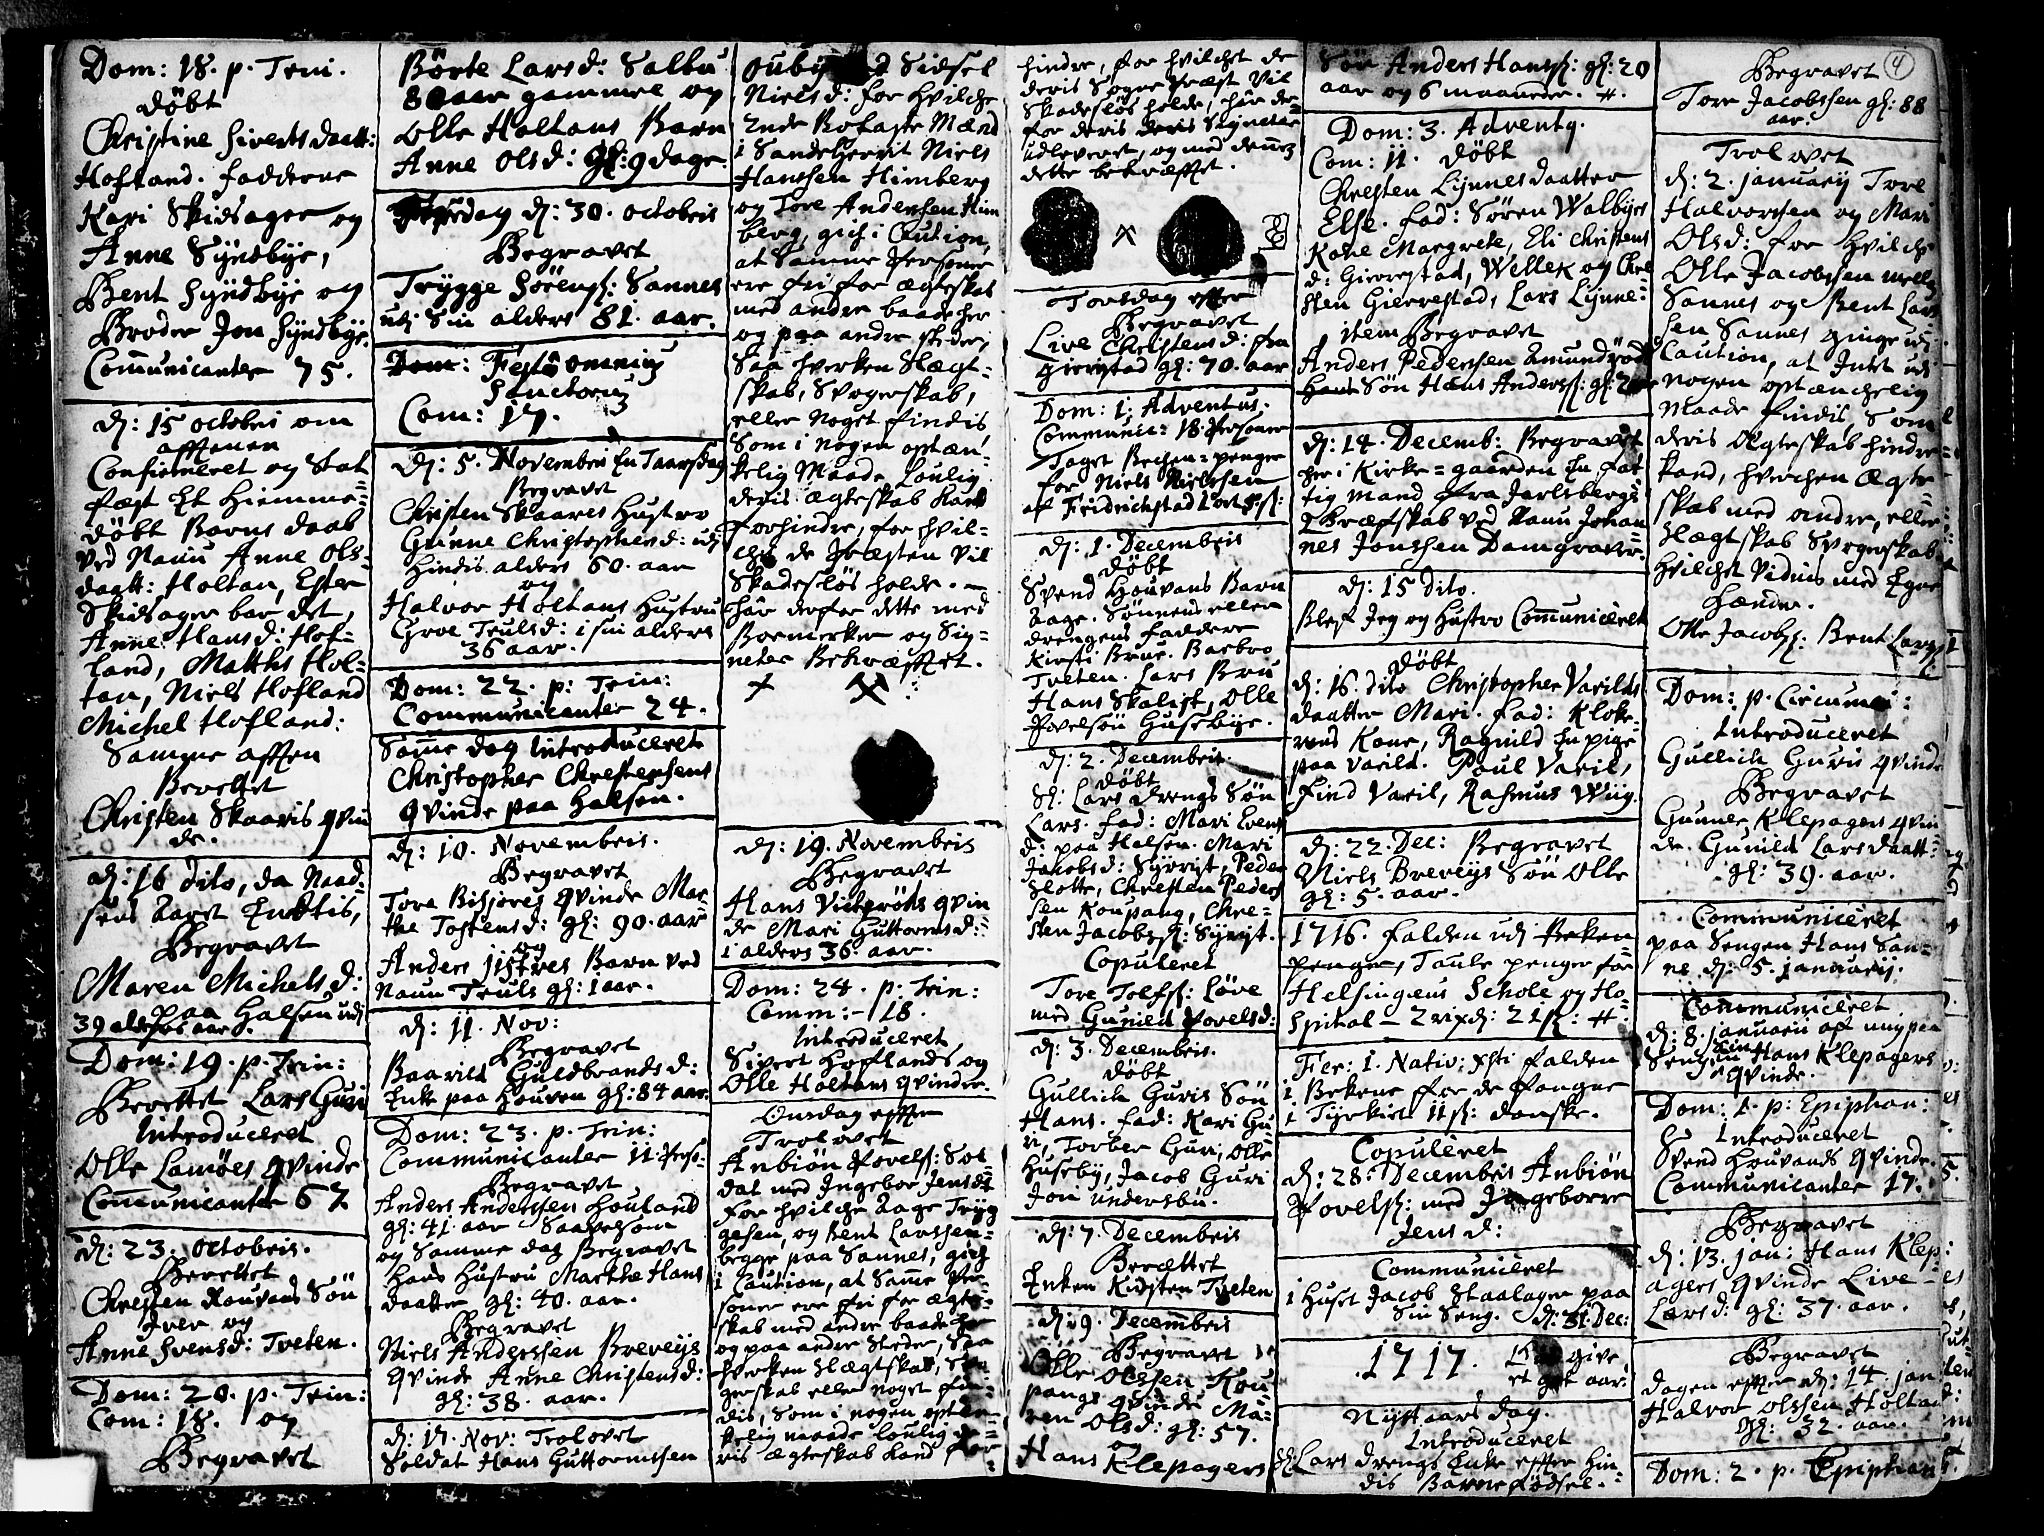 Dom: 18. p. Trin.
döbt
Christine Siverts daatt:
Hofland. fadderne
Kari Skidsager og
Anne Syndbye,
Bent Syndbye og
Broder Jon Syndbye.
Communicanter 75.
d: 15 octobris om
afftenen
Confirmeret og Stad
fæst Et Hiemme=
döbt Barns daab
ved Naun Anne Ols=
daatt: Holtan, Ester
Skidsager bar det,
Anne Hansd: Hof=
land, Matths Hol=
tan, Niels Hofland
Michel Hofland:
Samme afften
Berettet
Christen Skaaris qvin
de.
d: 16 dito, da Naad=
sens Aaret Endtis,
Begravet
Maren Michelsd:
paa Halsen udj
39 alders aar.
Dom: 19. p. Trin:
Berettet Lars Guri
Introduceret
Olle Lamöes qvinde
Communicanter 67
d: 23. octobris.
Berettet
Chresten Houvands Sön
Iver og
Anne Svensd: Tveten.
Dom: 20. p. Trin:
Com: 18. og
Begravet
Börte Larsd: Salbu
80 aar gammel og
Olle Holtans Barn
Anne Olsd: gl: 9 dage.
d: 30. octobris
Begravet
Trygge Sörens: Sannes
udj Sin alders 81. aar.
Dom: Festo omnium
Sanctorum
Com: 17.
d: 5. Novembris En Taarsdag
Begravet
Christen Skaares Hustro
Gunne Christophersd: udj
Hindis alders 60. aar
og
Halvor Holtans Hustru
Groe Truls d: i sin alders
36 aar.
Dom: 22. p: Trin:
Communicanter 24.
Samme dag Introduceret
Christopher Chrestensens
qvinde paa Halsen.
d: 10. Novembris.
Begravet
Tore Bisjores qvinde Mar=
the Tostensd: gl: 90. aar
og
Anders Jistres Barn ved
Naun Truls gl: 1 aar.
d: 11. Nov:
Begravet
Baarild Guldbrands d:
Enke paa Houven gl: 84 aar.
Dom: 23. p. Trin:
Communicanter 11: Perso.
Begravet
Anders Anderssen Houland
gl: 41. aar Saavelsom
og Samme dag Begravet
Hans Hustru Marthe Hans
daatter gl: 40. aar.
Begravet
Niels Anderssen Breveys
qvinde Anne Christensd:
gl: 38. aar.
d: 17. Nov: Trolovet
Soldat Hans Guttormssen
Sidsel
Nielsd: for hvilche
2nde Bofaste Mænd
i Sande Herrit Niels
Hanssen Himberg
og Tore Andersen Him
berg, gich i Caution,
at Samme Personer
ere fri for ægteskab
med andre baade her
og paa andre steder,
Saa hverken Slægt=
skab, Svogerskab,
eller noget findis
Som i nogen optæn=
kelig Maade Loulig
deris ægteskab Kand
forhindre, for hvil=
chet de Præsten vil
Skadeslös holde. —
här derfor dette med
Boemerker og Sig=
neter Bekræfftet.
d: 19. Novembris
Begravet
Hans Vittersöes qvin
de Mari Guttormsd:
i alders 36. aar.
Dom: 24. p. Trin:
Comm: — 18.
Introduceret
Sivert Hoflands og
Olle Holtans qvinder.
Onsdag efften
Trolovet
Anbiön Povels: Sol
dat med Ingebor Jensd:
For hvilche Aage Tryg
gesen, og Bent Larssen
begge paa Sannes, gich
i Caution, at Samme Per=
soner ere fri for ægte=
skab med andre baade her
og paa andre Steder, Saa
hverken Slægtskab, Svo=
gerskab eller noget fin=
dis, Som i nogen optæn=
kelig maade loulig de=
ris ægteskab kand for=
hindre, for hvilchet de
deris Sogne Præst vil
Skadeslös holde, här der=
for deris deris Signeter
udleveret, og med dennem
dette bekræfftet.
Torsdag efter
Begravet
Live Christensd: fra
Gierestad gl: 70. aar
Dom: 1. Adventus.
Communic: 18 Personer
Taget Bechen=penger
for Niels Nielssen
af Fridrichstad
d: 1. Decembris
döbt
Svend Houvans Barn
Aage. Sönnens eller
drengens faddere
Kirsti Brue. Barbro
Tveten. Lars Bru
Hans Skalist, Olle
Povelsön Husebye.
d: 2. Decembris.
döbt
Sl: Lars Drengs Sön
Lars. fad: Mari Evens
d: paa Halsen. Mari
Jacobsd: Syrrist, Peder
Slotte, Chresten Peders
sen Koupang, Chre=
sten Jacobs: Syrist.
Copuleret
Tore Tolfs: Löve
med Gunild Povelsd:
d: 3. Decembris.
döbt
Gullich Guris Sön
Hans. fad: Kari Gu
ri, Torber Guri, Olle
Huseby, Jacob Guri
Jon Undersbu.
d: 7. Decembris
Berættet
Enken Kirsten Tveten
d: 9. Decembris
Begravet
Olle Olssen Kou
pangs qvinde Ma=
ren Olsd: gl: 57.
og
Hans Klepagers
Sön Anders Hanss: gl: 20
aar og 6 maaneder.
Dom: 3. Advent9.
Com: 11. döbt
Chresten Lynnes daatter
Else. fad: Sören Walbyes
Kone Margrete, Eli Christens
d: Gierrestad, Wellek og Chre
sten Gierrestad, Lars Lynne:
item Begravet
Anders Pedersen Amundröds
Sön Hans Anderss: gl:
d: 14. Decemb: Begravet
her i Kirke=gaarden En fat
tig mand fra Jarlsbergs
Grefskab ved Naun Johan
nes Jonssen Damgraver.
d: 15 Dito.
Blef Jeg og Hustro Communiceret
döbt
d: 16. dito Christopher Varilds
daatter Mari. fad: Kloke=
rens Kone, Ragnild En pige
paa Varild. Poul Varil,
Find Varil, Rasmus Wiig.
d: 22. Dec: Begravet
Niels Breveys Sön Olle
gl: 5. aar.
1716. falden udj Beken
penge, Taule penger for
Helsingöens Schole og Ho=
spital — 2 rixd: 21 s:
Fer: 1. Nativ: Xsti falden
i Bekene for de fangne
i Tyrkiet 11 s: danske.
Copuleret
d: 28. Decembris Anbiön
Povels: med Ingeborre
Jens d:
Communiceret
i Huset Jacob Staalager paa
Sin Seng. d: 31. Dec:
1717. give
et got aar.
Nyttaars dag.
Introduceret
Sl: Lars Drengs Enke effter Hin
dis Barne födsel.
4
Begravet
Tore Jacobssen gl: 88
aar.
Trolovet
d: 2. januarij Tore
Halvorssen og Mari
Olsd: for hvilche
Olle Jacobssen mellem
Sannes og Bent Lars
sen Sannes ginge udj
Caution, at Intet udj
nogen optænchelig
Maade findis, Som
deris Ægteskab hindre=
kand, hverchen Ægte
skab med andre, eller
Slægtskab Svogerskab
hvilchet vidnis med Egne
Hænder.
Olle Jacobs: Bent Larss:
Dom: p. Circumci:
Introduceret
Gullich Guris qvinde
Begravet
Gunner Klepagers qvin
de Gunild Lars daatt:
gl: 39. aar.
Communiceret
paa Sengen Hans San=
nes d: 5. januarij.
Communiceret
d: 8. januarii
Sengen Hans Klepagers
qvinde.
Dom: 1. p: Epiphan:
Introduceret
Svend Houvands qvinde.
Communicanter 17.
Begravet
d: 13. jan: Hans Klep=
agers qvinde Live
Larsd: gl: 37. aar.
Begravet
dagen effter d: 14. jan
Halvor Olssen Holtan
gl: 32. aar.
Dom: 2. p. Epiphan